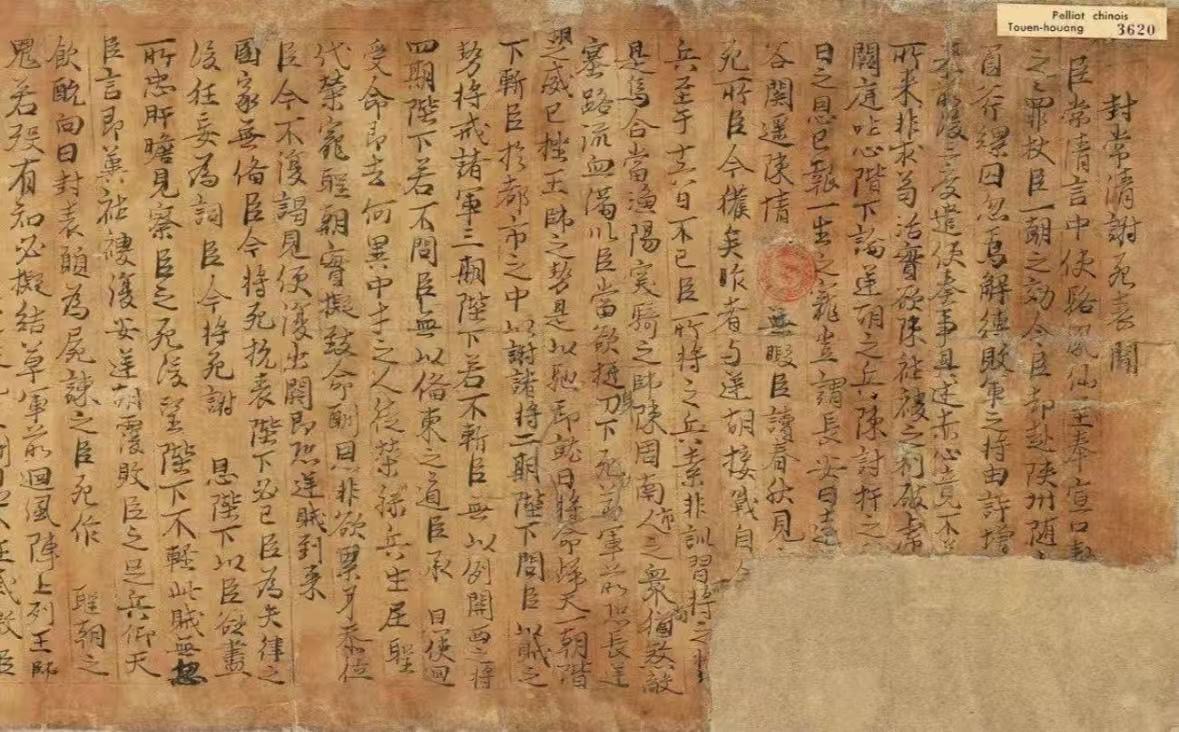 Pelliot chinois
Touen-houang 3620
封常清謝死表聞
臣常清言中使駱鳳仙至奉宣口
之罪杖臣一朝之効今臣却赴陝州随
首斧縲囚忽焉解縛敗軍之将由許增
三度遣使奉事具述赤心竟不
所来非求苟活實欲陳社稷之利破
闕庭吐心階下論逆胡之兵陳討扞之
日之恩已報一生之寵豈謂長安日遠
谷関遥陳情無暇臣讀春秋見
死所臣今獲矣昨者与逆胡接戰自
兵至于十三日不已臣所将之兵素非訓習将之
是烏合當漁陽突騎之師陳周南人之衆猶煞敵
塞路流血滿川臣當欲挺刀下死軍前恐長逆
胡之威已挫王師之势是以馳即就日将命歸天一朝階
下斬臣於都市之中以謝諸将二期陛下問臣以賊之
势将戒諸軍三期陛下若不斬臣無以例關西之将
四期陛下若不問臣無以俻東之道臣承 日使回
受命即去何異中才之人徒榮禄兵生居聖
代榮寵聖朝實擬致命酬恩非欲累身忝位
臣今不復謁見便復出關即恐逆賊到来
國家無俻臣今将死抗表陛下必已臣為失律之
後狂妄為詞臣今将死謝 恩陛下以臣欲盡
所忠肝膽見察臣之死後望陛下不輕此賊無忽
臣言即冀社稷復安逆胡覆敗臣之足矣仰天
飲酖向日封表願為屍諫之臣死作 聖朝之
鬼若殁有知必擬結草軍前迴風陣上列王師